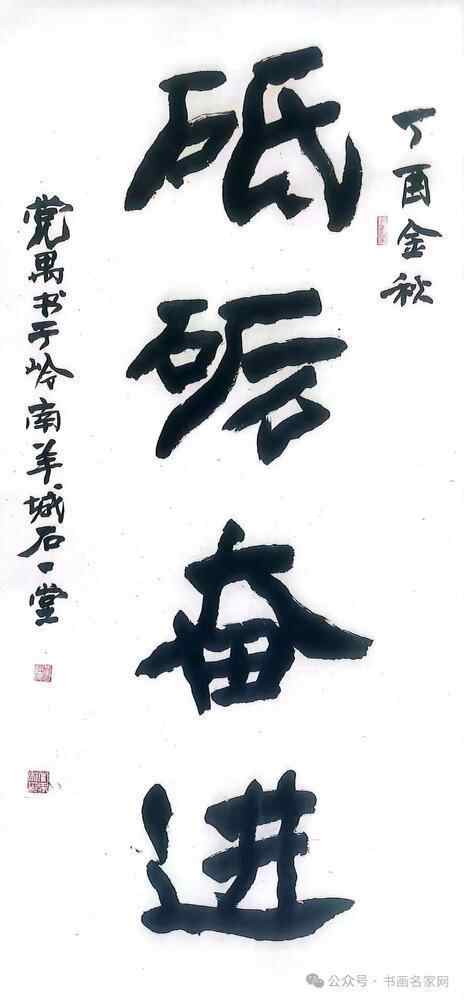 丁酉金秋
砥砺奋进
党禺书于岭南羊城石一堂
公众号·书画名家网